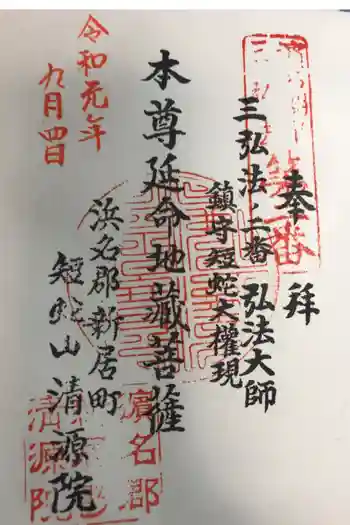 奉拝
第一番
三弘法ノ二番 弘法大師
鎮守短蛇大権現
本尊延命地蔵菩薩
浜名郡新居町
短蛇山清源院
令和元年
九月四日
濱名郡
清源院